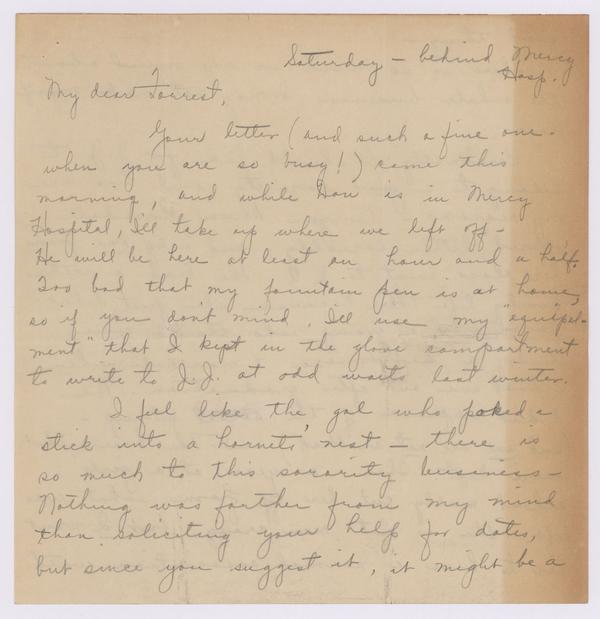 Saturday – behind Mercy
Hosp.
My dear Forrest,
Your letter (and such a fine one -
when you are so busy!) came this
morning, and while Don is in Mercy
Hospital, I'll take up where we left off -
He will be here at least an hour and a half.
Too bad that my fountain pen is at home,
so if you don't mind, I'll use my "equipel-
ment" that I kept in the glove compartment
to write to J.J. at odd waits last winter.
I feel like the gal who poked a
stick into a hornets' nest – there is
so much to this sorority business -
Nothing was farther from my mind
than soliciting your help for dates,
but since you suggest it, it might be a